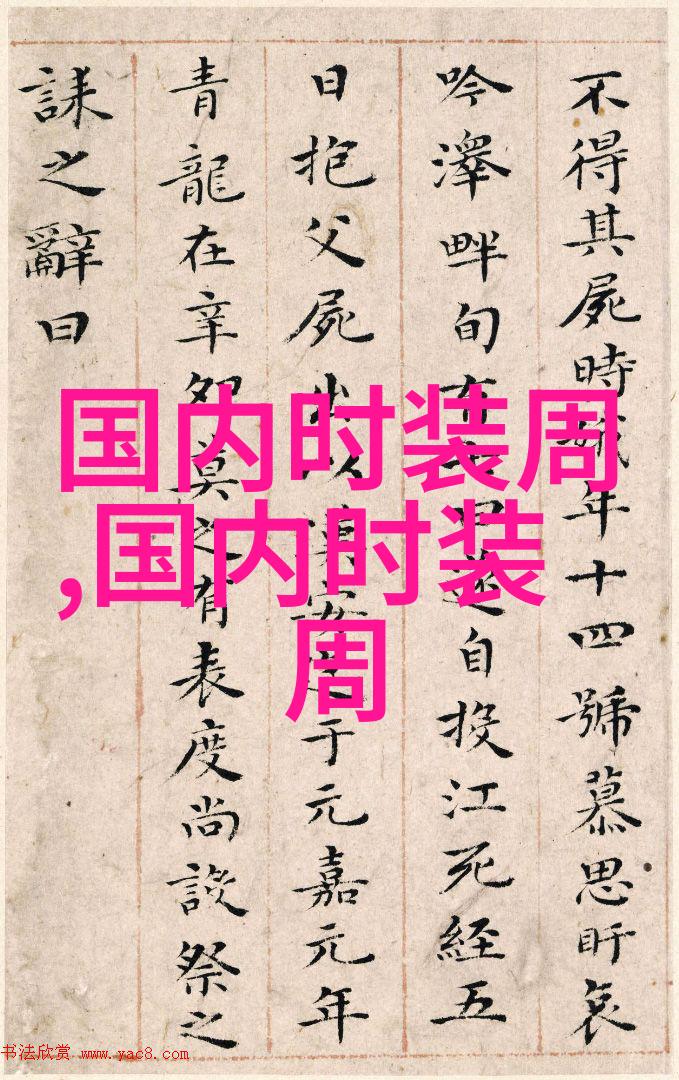 不得其屍時娥年十四號慕思盱哀
吟澤畔旬有遂自投江死經五
日抱父屍出以漢安迄于元嘉元年
青龍在辛卯莫之有表度尚設祭之
誄之辭曰
国内时装周
,国内时装
周
书法欣赏 www.yac8.com